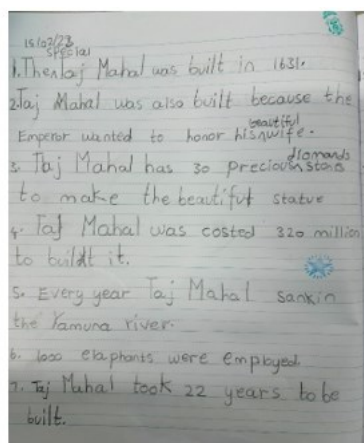 15/02/23
special
1. The Taj Mahal was built in 1631.
2. Taj Mahal was also built because the
beautiful
Emperor wanted to honor his wife.
diomands
3. Taj Mahal has 30 precious stones
to make the beautiful statue
4. Taj Mahal was costed 320 million
to buildt it.
5. Every year Taj Mahal sankin
the Yamuna river.
6. 1000 elaphants were employed.
7. Taj Mahal took 22 years to be
built.